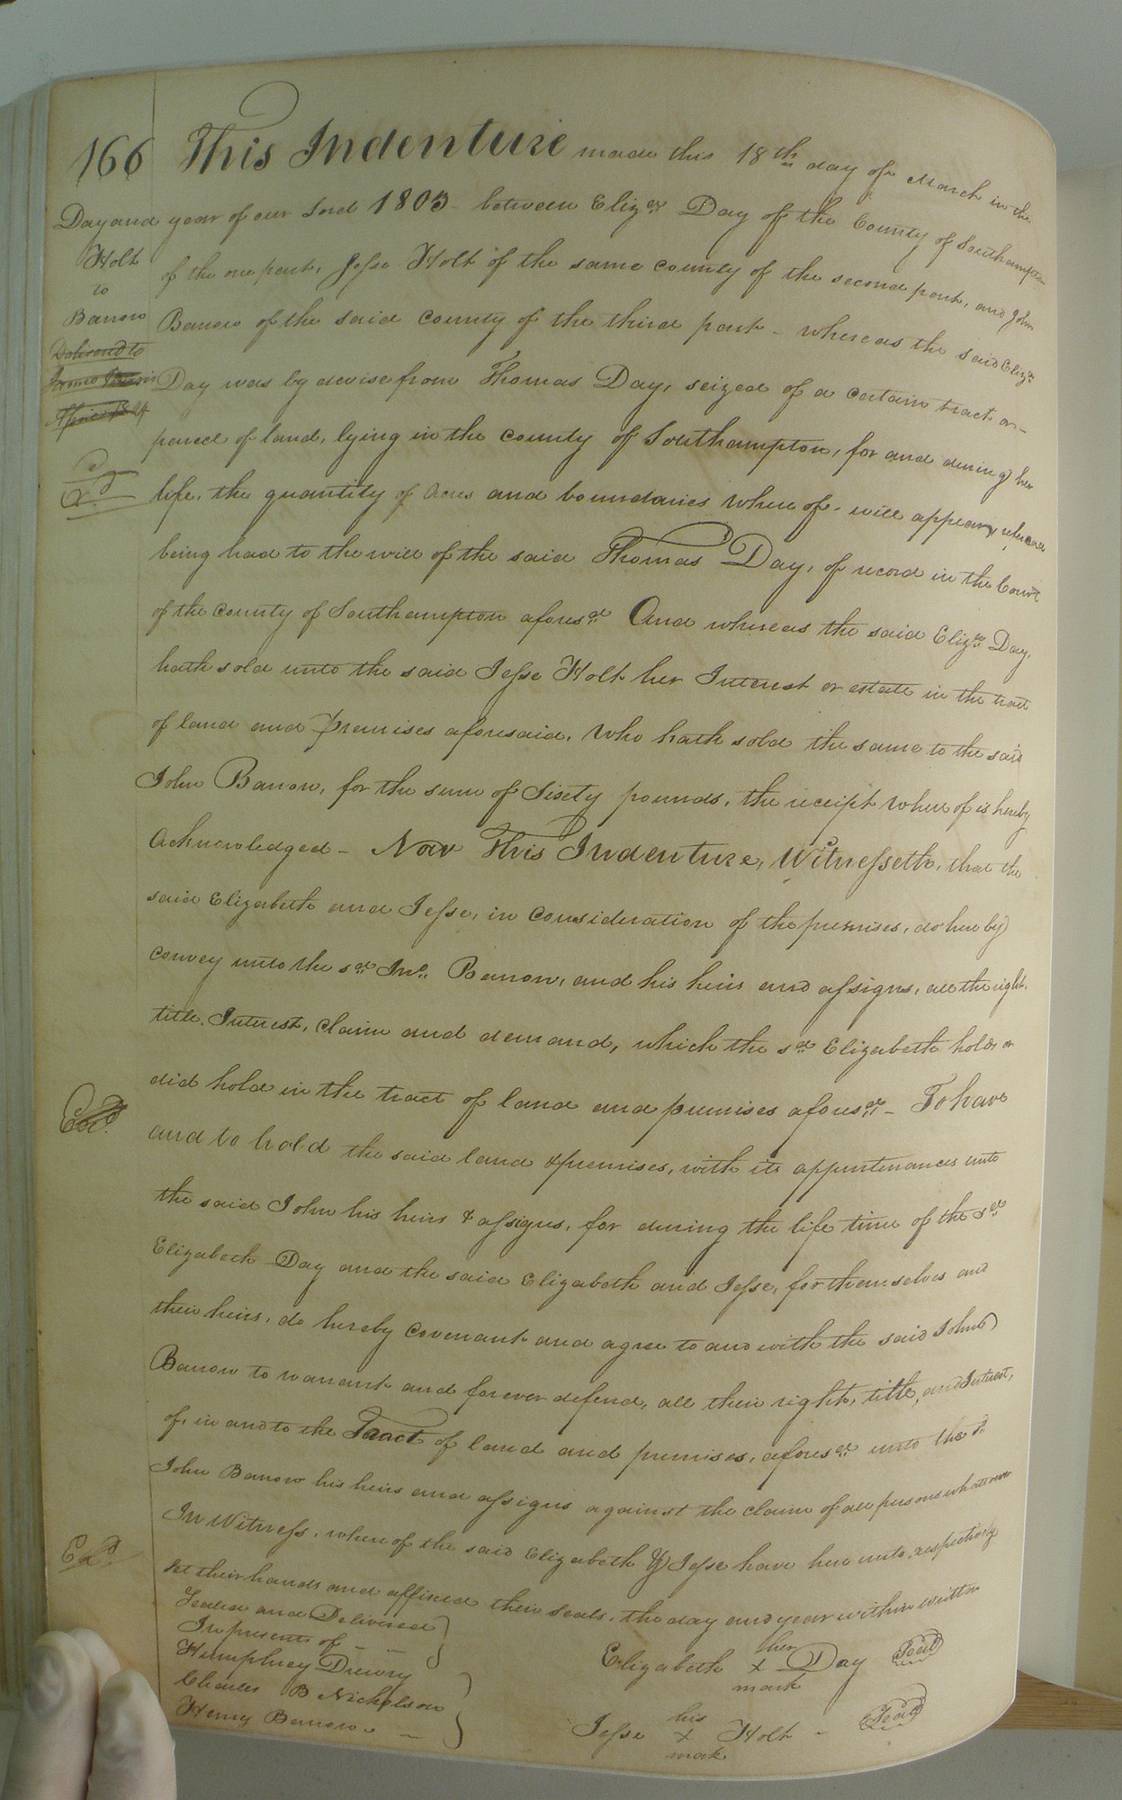 166 This Indenture made this 18th day of March in the
Day and
Holt
to
Barrow
Delivered to
Ex.d
Exd.
Exd
year of our Lord 1803 between Elizth Day of the County of Southampton
of the one part, Jesse Holt of the same county of the second part, and John
Barrow of the said county of the third part - whereas the said Elizth
Day was by devise from Thomas Day, seized of a certain tract or -
parcel of land, lying in the county of Southampton, for and during her
life, the quantity of Acres and boundaries whereof - will appear, reference
being had to the will of the said Thomas Day, of record in the Court
of the county of Southampton aforesd. And whereas the said Elizth Day,
hath sold unto the said Jesse Holt her Interest or estate in the tract
of land and premises aforesaid, Who hath sold the same to the said
John Barrow, for the sum of Sixty pounds, the receipt whereof is hereby
Acknowledged - Now This Indenture, Witnesseth, that the
said Elizabeth and Jesse, in consideration of the premises, do hereby
convey unto the sd Jno. Barrow, and his heirs and assigns, all the right,
title, Interest, claim and demand, which the sd Elizabeth holds or
did hold in the tract of land and premises aforesd. - To have
and to hold the said land & premises, with its appurtenances unto
the said John his heirs & assigns, for during the life time of the sd
Elizabeth Day and the said Elizabeth and Jesse, for themselves and
their heirs, do hereby covenant and agree to and with the said John
Barrow to warrant and forever defend, all their right, title, and Interest,
of, in and to the Tract of land and premises, aforesd. unto the sd
John Barrow his heirs and assigns against the claim of all persons whatsoever
In Witness, whereof the said Elizabeth & Jesse have hereunto respectively
set their hands and affixed their seals, the day and year within written
Sealed and Delivered
In presents of - -
Humphrey Drewry
Charles B Nicholson
Henry Barrow -
Elizabeth her X mark Day Seal
Jesse his X mark Holt - Seal